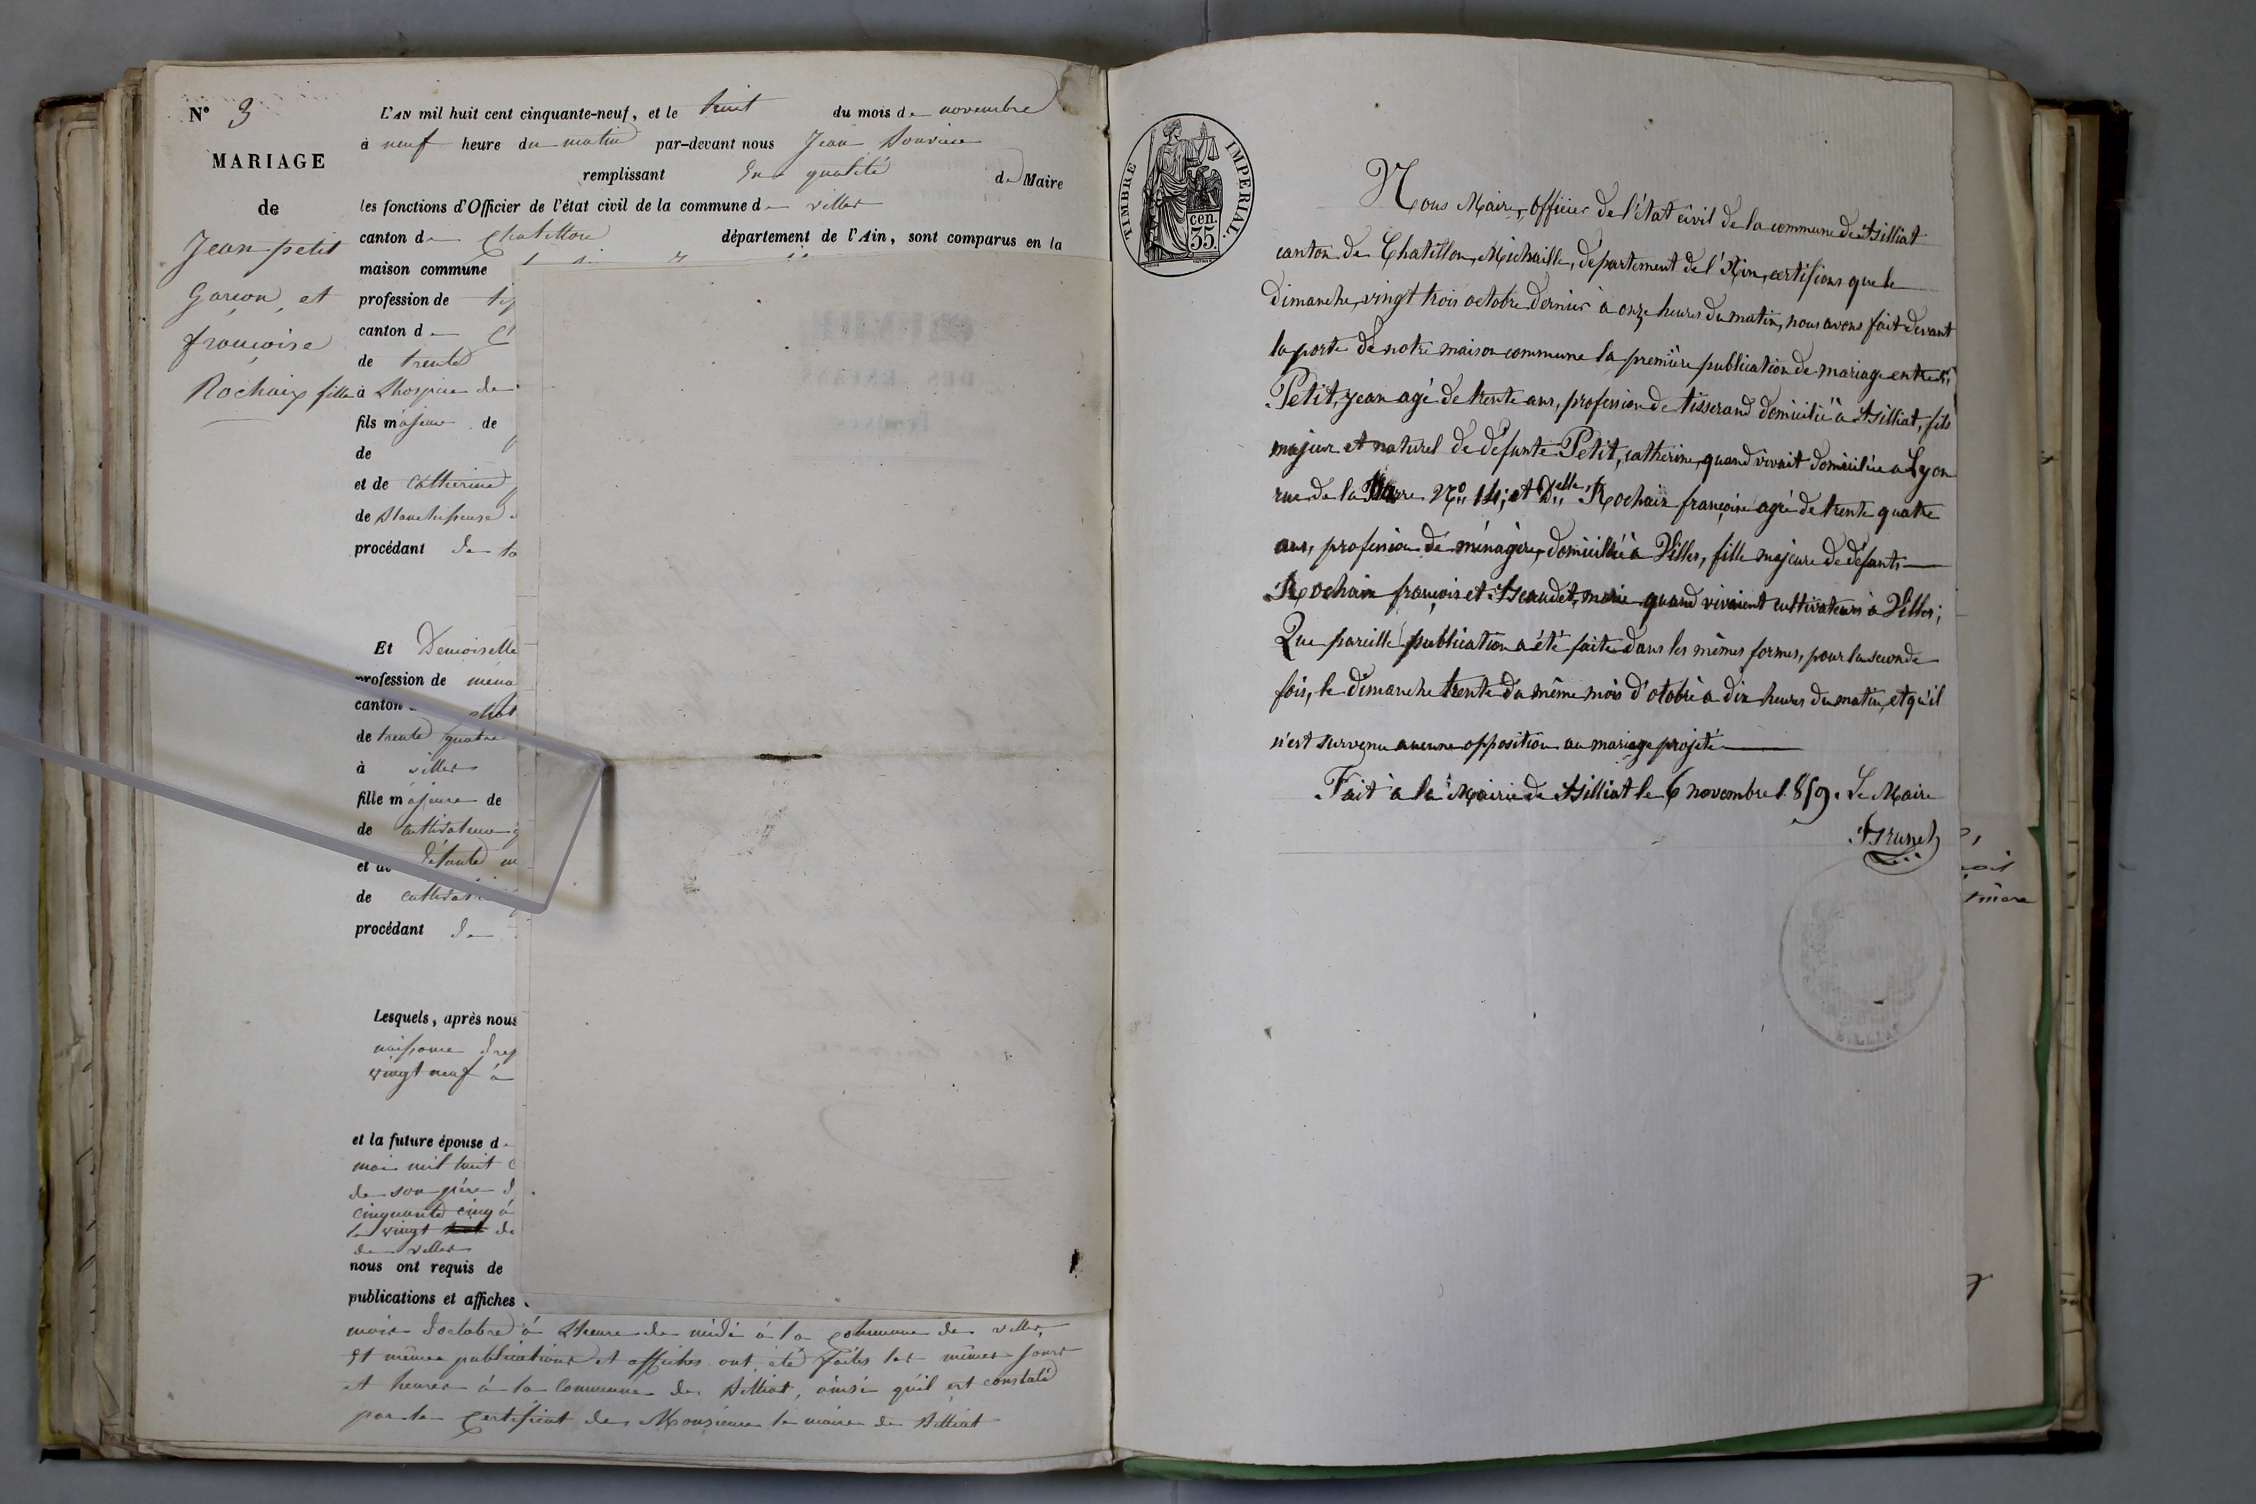 N° 3
MARIAGE
de
Jean petit
Garçon, et
françoise
Rochaix fille
L'AN mil huit cent cinquante-neuf, et le huit du mois de novembre
à neuf heure du matin par-devant nous Jean
remplissant En qualité de Maire
les fonctions d'Officier de l'état civil de la commune de villes
canton de Chatillon département de l'Ain, sont comparus en la
maison commune
profession de
canton de
de trente
à Lhospice de
fils majeur de
de
et de Catherine
de Blanchisseuse
procédant de
Et Demoiselle
profession de ména
canton
de trente quatre
à villes
fille majeure de
de cultivateur
et de
de
procédant de
Lesquels, après nous
naissance
vingt neuf à
et la future épouse d
mai mil huit
de son père
cinquante cinq à
le vingt de
de villes
nous ont requis de
publications et affiches
mois d'octobre à Lheure de midi à la commune de villes,
et mêmes publications et affiches ont été faites les mêmes jours
et heures à la Commune de Billiat, ainsi qu'il est constaté
par le Certificat de Monsieur le maire de Billiat
TIMBRE IMPERIAL.
35 cen.
Nous Maire, officier de l'état civil de la commune de Billiat
canton de Chatillon, Michaille, département de l'Ain, certifions que le
dimanche, vingt trois octobre dernier à onze heures du matin, nous avons fait devant
la porte de notre maison commune la première publication de mariage entre
Petit, jean agé de trente ans, profession de tisserand domicilié à Billiat, fils
majeur et naturel de défunte Petit, catherine, quand vivait domiciliée à Lyon
rue de la N° 14; et Delle Rochaix françoise agée de trente quatre
ans, profession de ménagère, domiciliée à Villes, fille majeure de défunts
Rochaix françois et Beaudet, marie quand vivaient cultivateurs à Villes;
Que pareille publication a été faite dans les mêmes formes, pour la seconde
fois, le dimanche trente du même mois d'otobre à dix heures du matin, et qu'il
n'est survenu aucune opposition au mariage projeté
Fait à la Mairie de Billiat le 6 novembre 1859. Le Maire
Brunet
BILLIAT